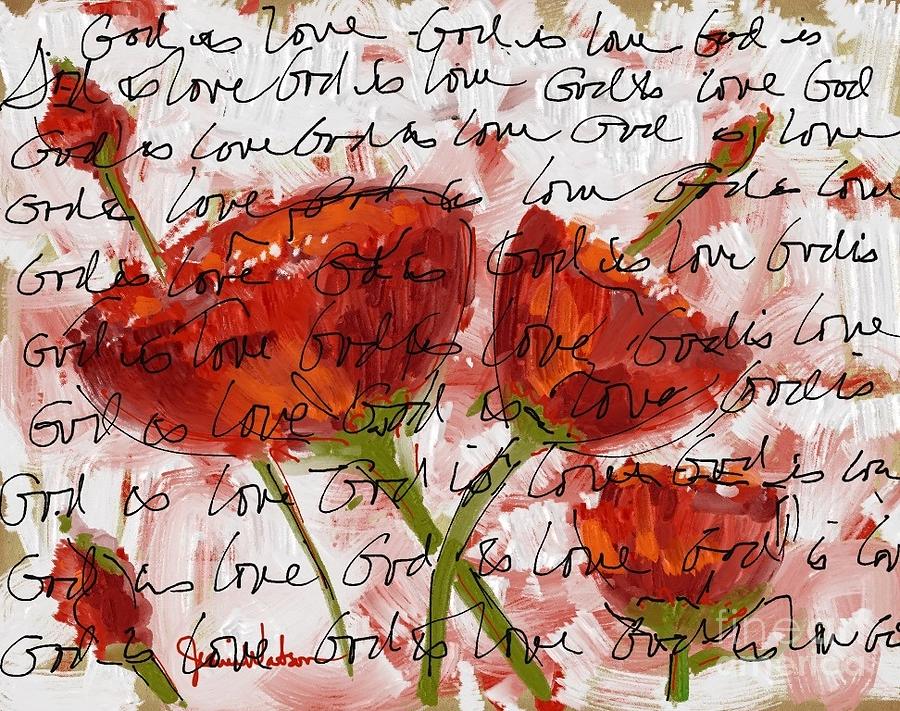 God is love God is love God is
God is love God is love God is love God
God is love God is love God is love
God is love God is love God is love
God is love God is God is love God is
God is love God is love God is love
God is love God is love God is
God is love God is love God is lov
God is love God is love God is lov
God is love God is love God is love Go
fine art
america